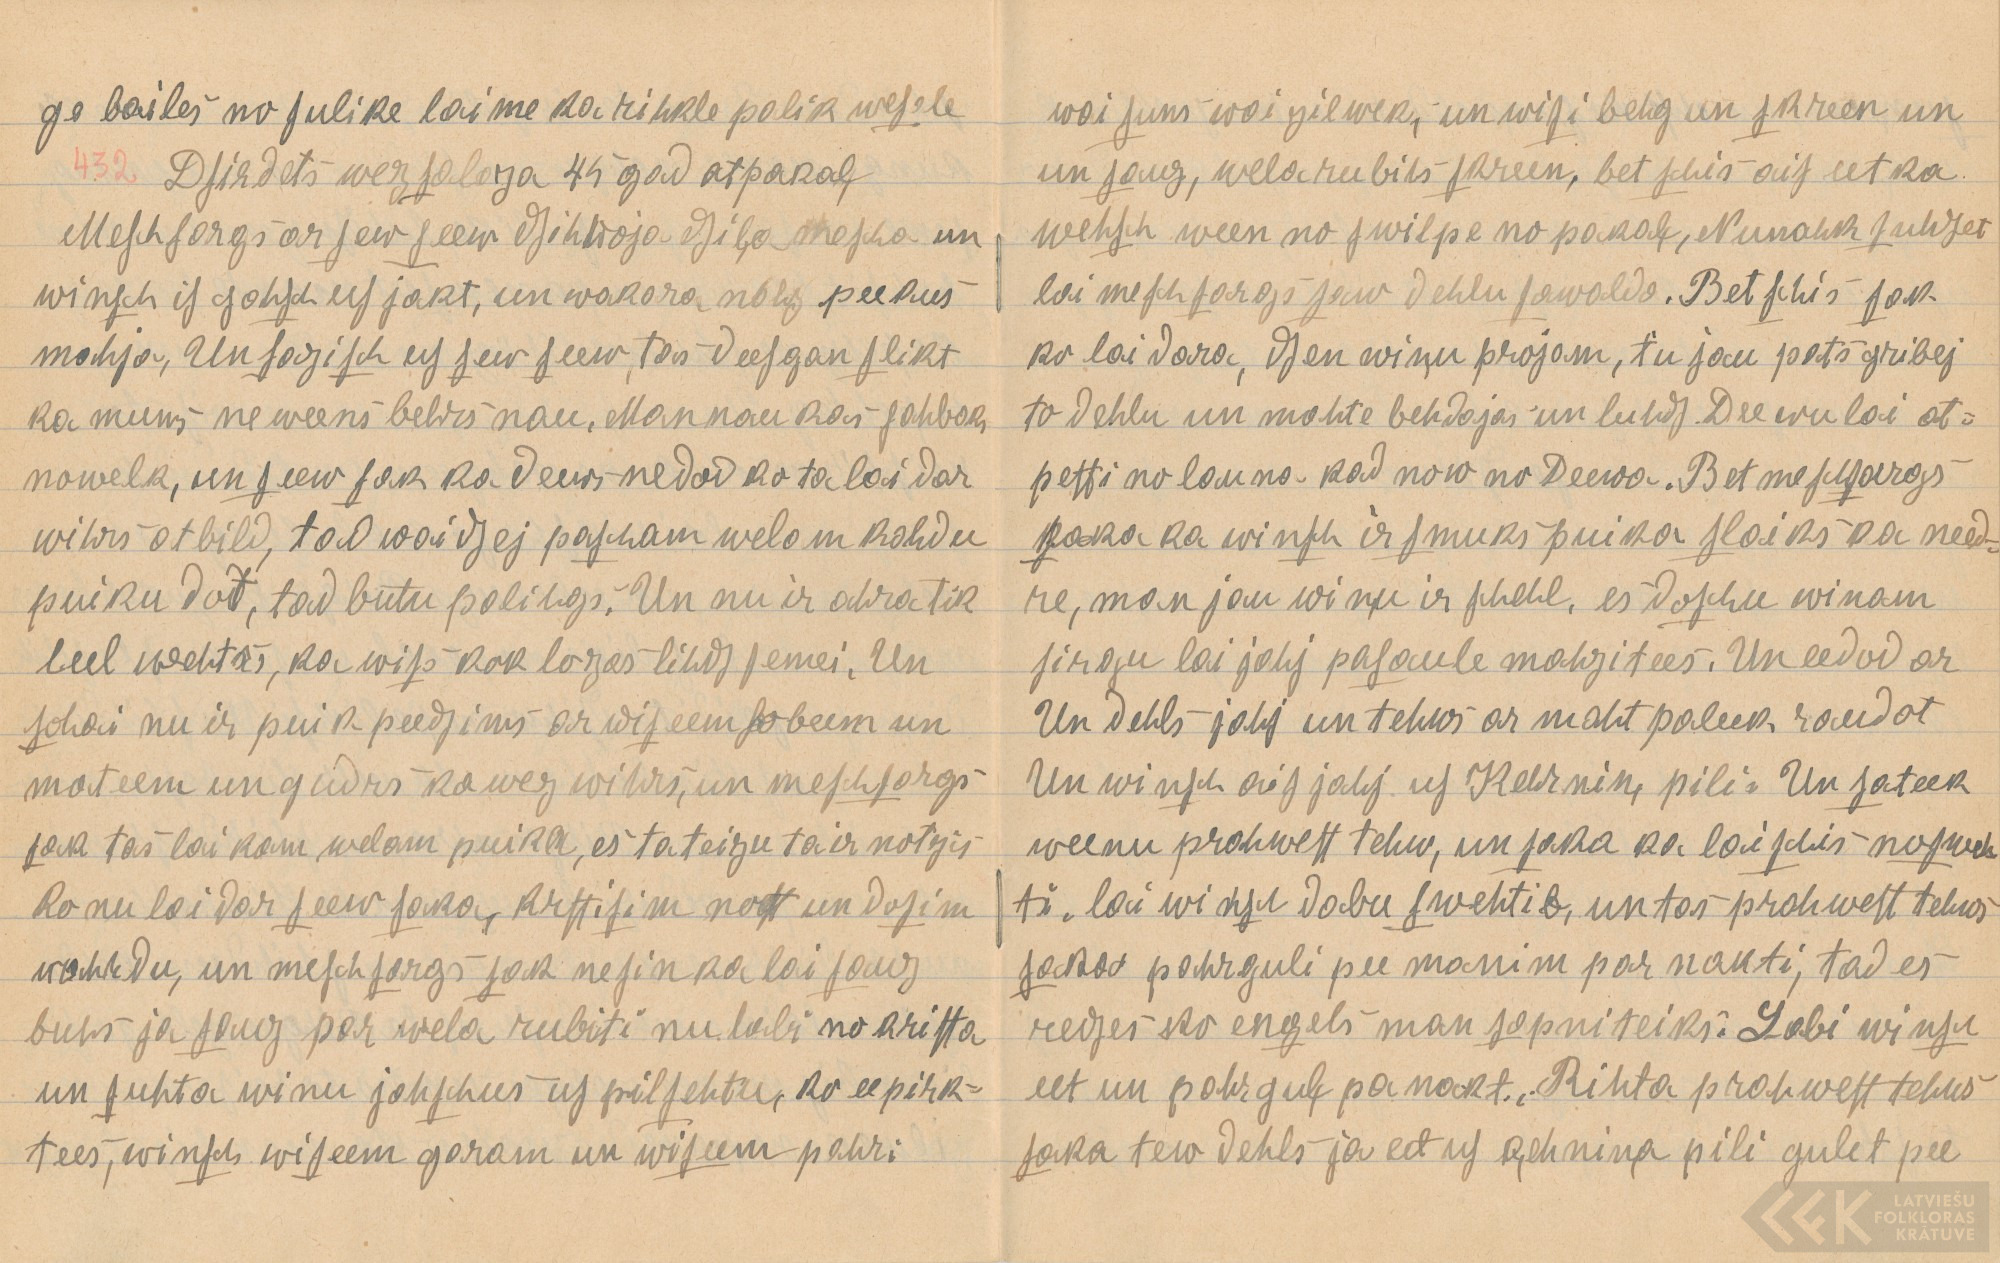 ge bailes no ſulike laime ka rihkle palik weſele
432 Dſirdets wezſaloza 45 gad atpakaļ
Meſchſargs ar ſew ſeew dſihwoja dſiļa meſcha un
winſch iſgahſch uſ jakt, un wakara nahz peekus
mahja, Un ſaziſch uſ ſew ſeew, tas deeſgan ſlikt
ka mums neweens behrs nau, Man nau kas ſahbak
nowelk, un ſeew ſak ka deews nedod ko ta lai dar
wihrs atbild, tad waidſej paſcham welam kahdu
puiku dot, tad butu palihgs. Un nu ir ahra tik
leel wehtrs, ka wiſs kok lozas lihdſ ſemei, Un
ſchai nu ir puik peedſims ar wiſeem ſobeem un
mateem un gudrs ka wez wihrs, un meſchſargs
ſak tas laikam welam puika, es ta teizu ta ir notizis
Ko nu lai dar ſeew ſaka, kriſtiſim noſt un doſim
wahrdu, un meſchſargs ſak neſin ka lai ſauz
buhs ja ſauz par wela rubiti nu labi no kriſta
un ſuhta winu jahſchus uſ pilſehtu, ko eepirk-
tees, winſch wiſeem garam un wiſeem pahri
wai ſuns wai zilwek, un wiſi behg un ſkreen un
un ſauz, wela rubihs ſkreen, bet ſchis aiſ eet ka
wehſch ween no ſwilpe no pakaļ, Nu nahk ſuhdſet
lai meſchſargs ſaw dehlu ſawalda. Bet ſchis ſak
ko lai dara, dſen winu projam, tu jau pats gribej
to dehlu un mahte behdajas un luhdſ Deewu lai at-
peſti no launa kad naw no Deewa. Bet meſchſargs
ſaka ka winſch ir ſmuks puika ſlaiks ka need-
re, man jau winu ir ſchehl, es doſchu winam
ſirgu lai jahj paſaule mahzitees. Un eedod ar
Un dehls jahj un tehws ar maht paleek raudot
Un winſch aiſjahj uſ Kehrniņ pili. Un ſateek
weenu prahweſt tehw, un ſaka ka lai ſchis noſweh
ti, lai winſch dabu ſwehtib, un tas prahweſt tehws
ſaka pahrguli pee manim par nakti, tad es
redſes ko engels man ſapni teiks. Labi winſch
eet un pahrguļ pa nakt. Rihta prahweſt tehws
ſaka tew dehls ja eet uſ ķehniņa pili gulet pee
LATVIEŠU
FOLKLORAS
KRĀTUVE